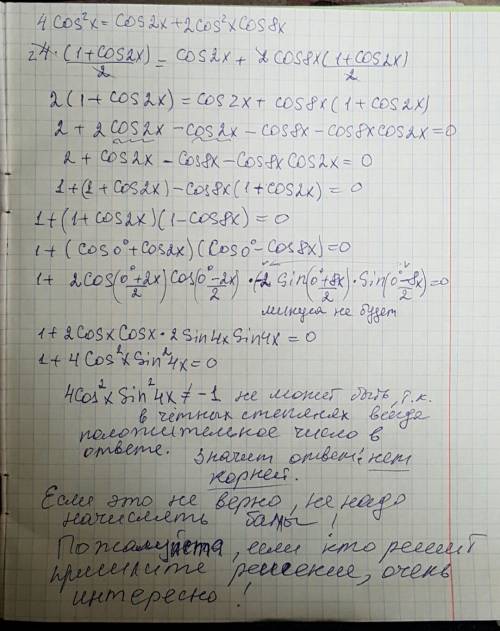 4cos²x = cos2x + 2cos²x cos8x
2 4·(1+cos2x)/2 = cos2x + 2cos8x(1+cos2x)/2
2(1+cos2x) = cos2x + cos8x(1+cos2x)
2+2cos2x-cos2x-cos8x-cos8xcos2x=0
2+cos2x-cos8x-cos8xcos2x=0
1+(1+cos2x)-cos8x(1+cos2x)=0
1+(1+cos2x)(1-cos8x)=0
1+(cos0°+cos2x)(cos0°-cos8x)=0
1+ 2cos(0°+2x)/2 cos(0°-2x)/2 · (-2 sin(0°+8x)/2 · sin(0°-8x)/2)=0
минуса не будет
1+2cosx cosx·2sin4x sin4x=0
1+4cos²x sin²4x=0
4cos²x sin²4x ≠ -1 не может быть, т.к.
в чётных степенях всегда
положительное число в
ответе. Значит ответ: нет
корней.
Если это не верно, не надо
начислять баллы!
Пожалуйста, если кто решит
пришлите решение, очень
интересно!